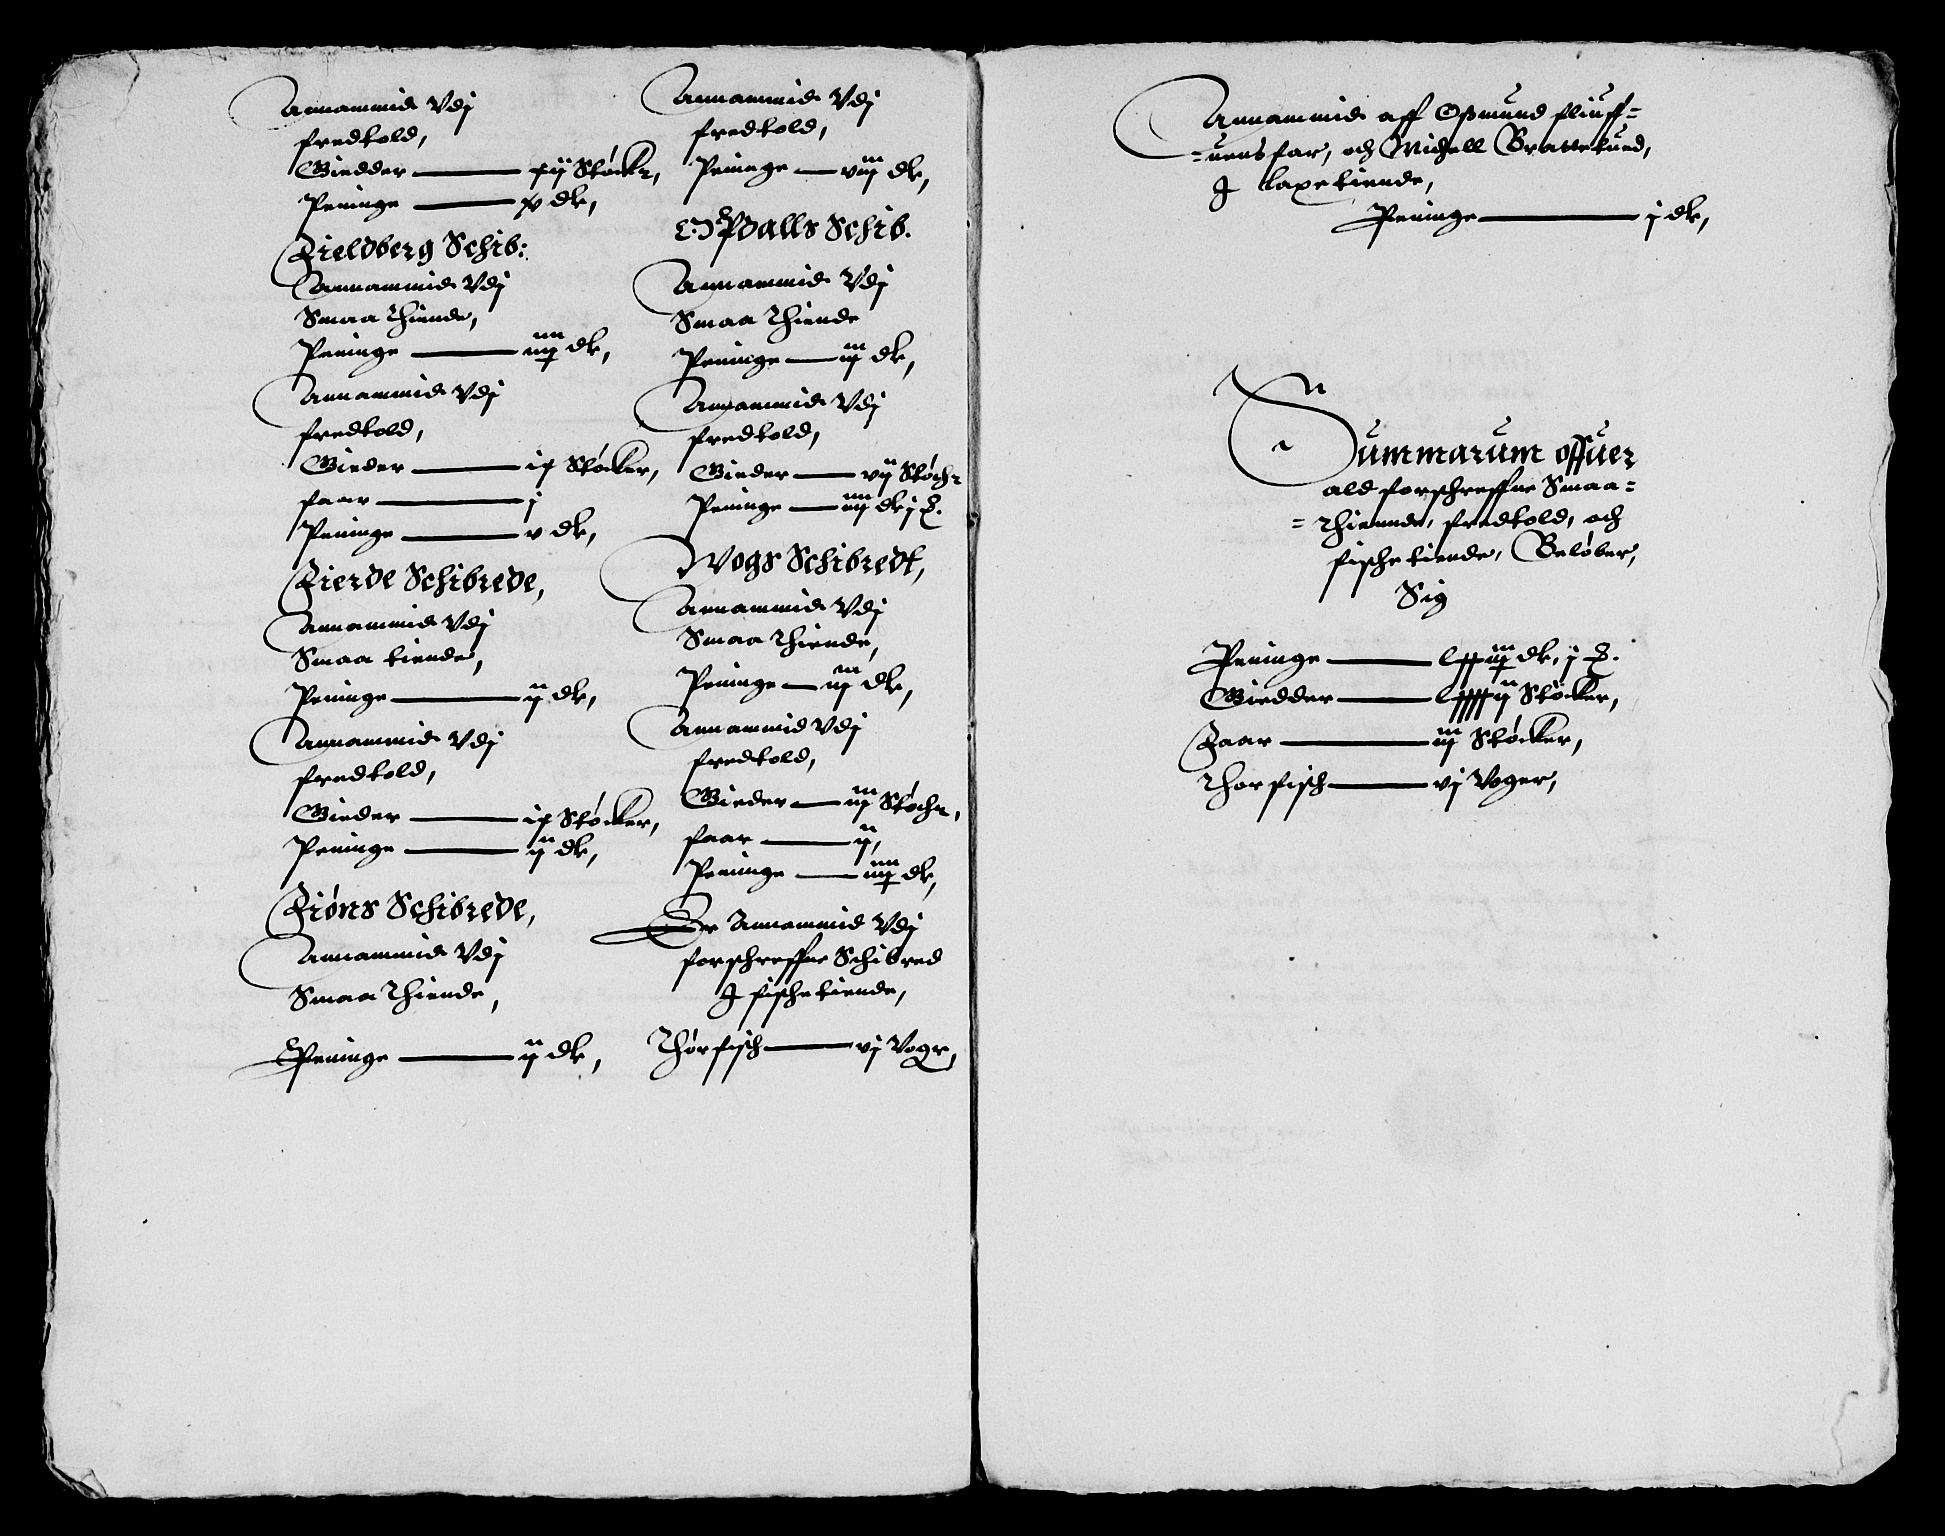 Annammid Vdj
fredtold,
Giedder — xij Støckr,
Peninge — xv dlr,
Fieldberg Schib:
Annammid Vdj
Smaa thiende,
Peninge — dlr,
Annammid Vdj
fredtold,
Gieder — ix Støcker,
faar — j
Peninge — v dlr,
Fierde Schibrede,
Annammid Vdj
Smaa tiende,
Peninge — ij dlr,
Annammid Vdj
fredtold,
Gieder — ix Støcker,
Peninge — ij dlr,
Fiøns Schibrede,
Annammid Vdj
Smaa thiende,
Peninge — ij dlr,
Annammid Vdj
fredtold,
Peninge — viij dlr,
Opdalls Schib.
Annammid Vdj
Smaa thiende
Peninge — iij dlr,
Annammid Vdj
fredtold,
Gieder — vij Støchr
Peninge — iiij dlr j
Wogs Schibredt,
Annammid Vdj
Smaa thiende,
Peninge — iij dlr,
Annammid Vdj
fredtold,
Gieder — iij Støchr,
faar — ij,
Peninge — dlr,
Er Annammid Vdj
forschreffne Schibred
J fische tiende,
Thørfisch — vj Vogr,
Annammid aff Oßmund fliuff=
=uensfar, och Michell Brattetued,
J laxe tiende,
Peninge — j dlr,
Summarum offuer
ald forschreffne Smaa=
=thiennde, fredtold, och
fische tiende, Beløber,
Sig
Peninge — dlr, j
Giedder — lxxxxij Støcker,
Faar — iij Støcker,
Thorfisch — vj Voger,